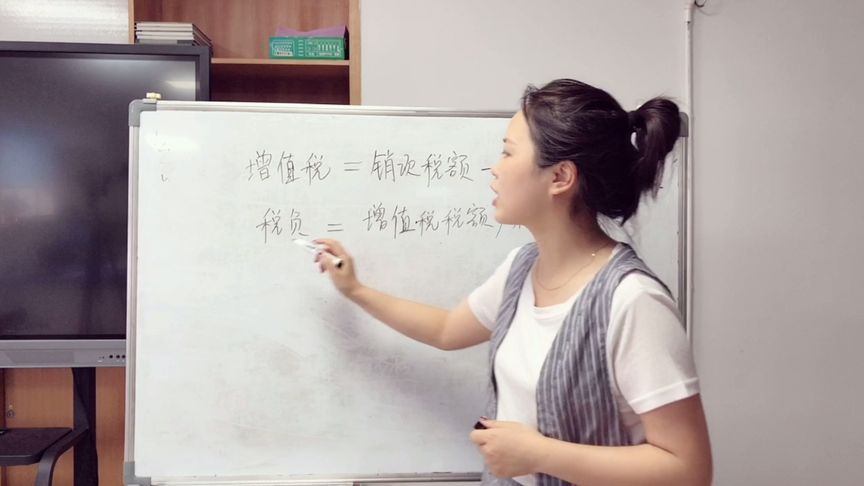 增值税 = 销项税额 -
税负 = 增值税税额 /